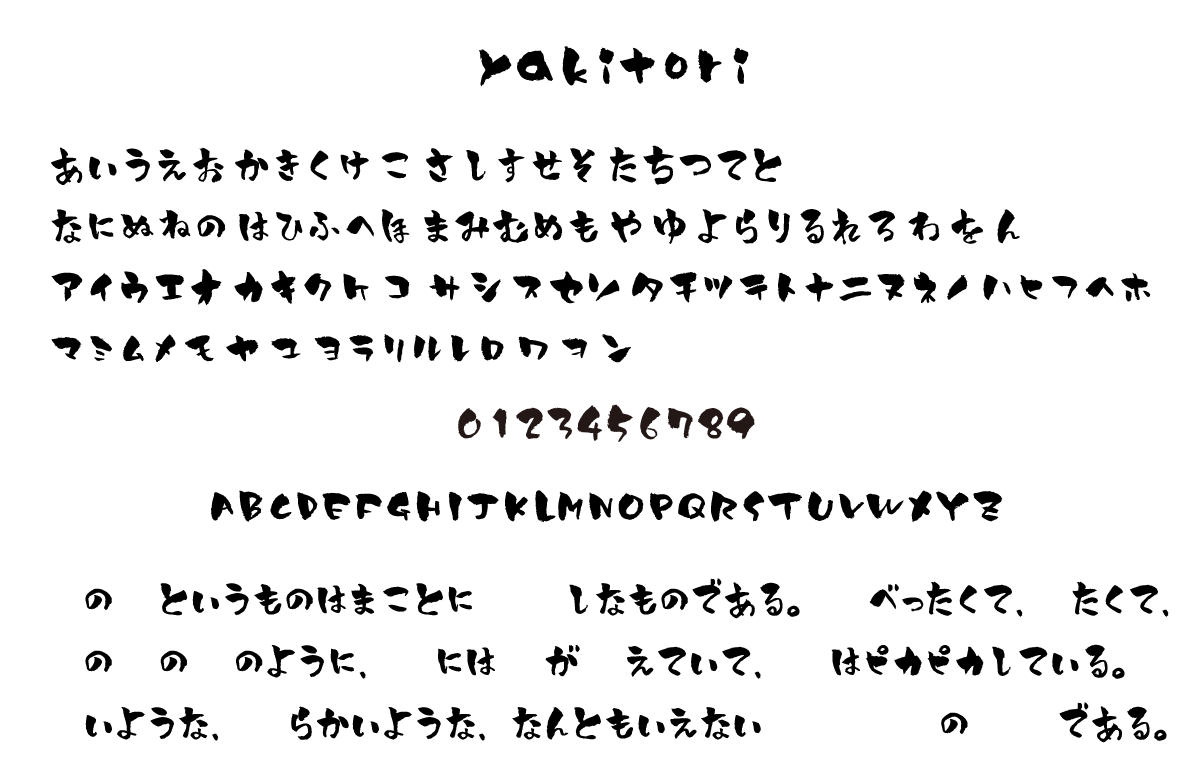 yakitori
あいうえおかきくけこさしすせそたちつてと
なにぬねのはひふへほまみむめもやゆよらりるれろわをん
アイウエオカキクケコサシスセソタチツテトナニヌネノハヒフヘホ
マミムメモヤユヨラリルレロワヲン
0123456789
ABCDEFGHIJKLMNOPQRSTUVWXYZ
の というものはまことに しなものである。 べったくて、 たくて、
の の のように、 には が えていて、 はピカピカしている。
いような、 らかいような、なんともいえない の である。